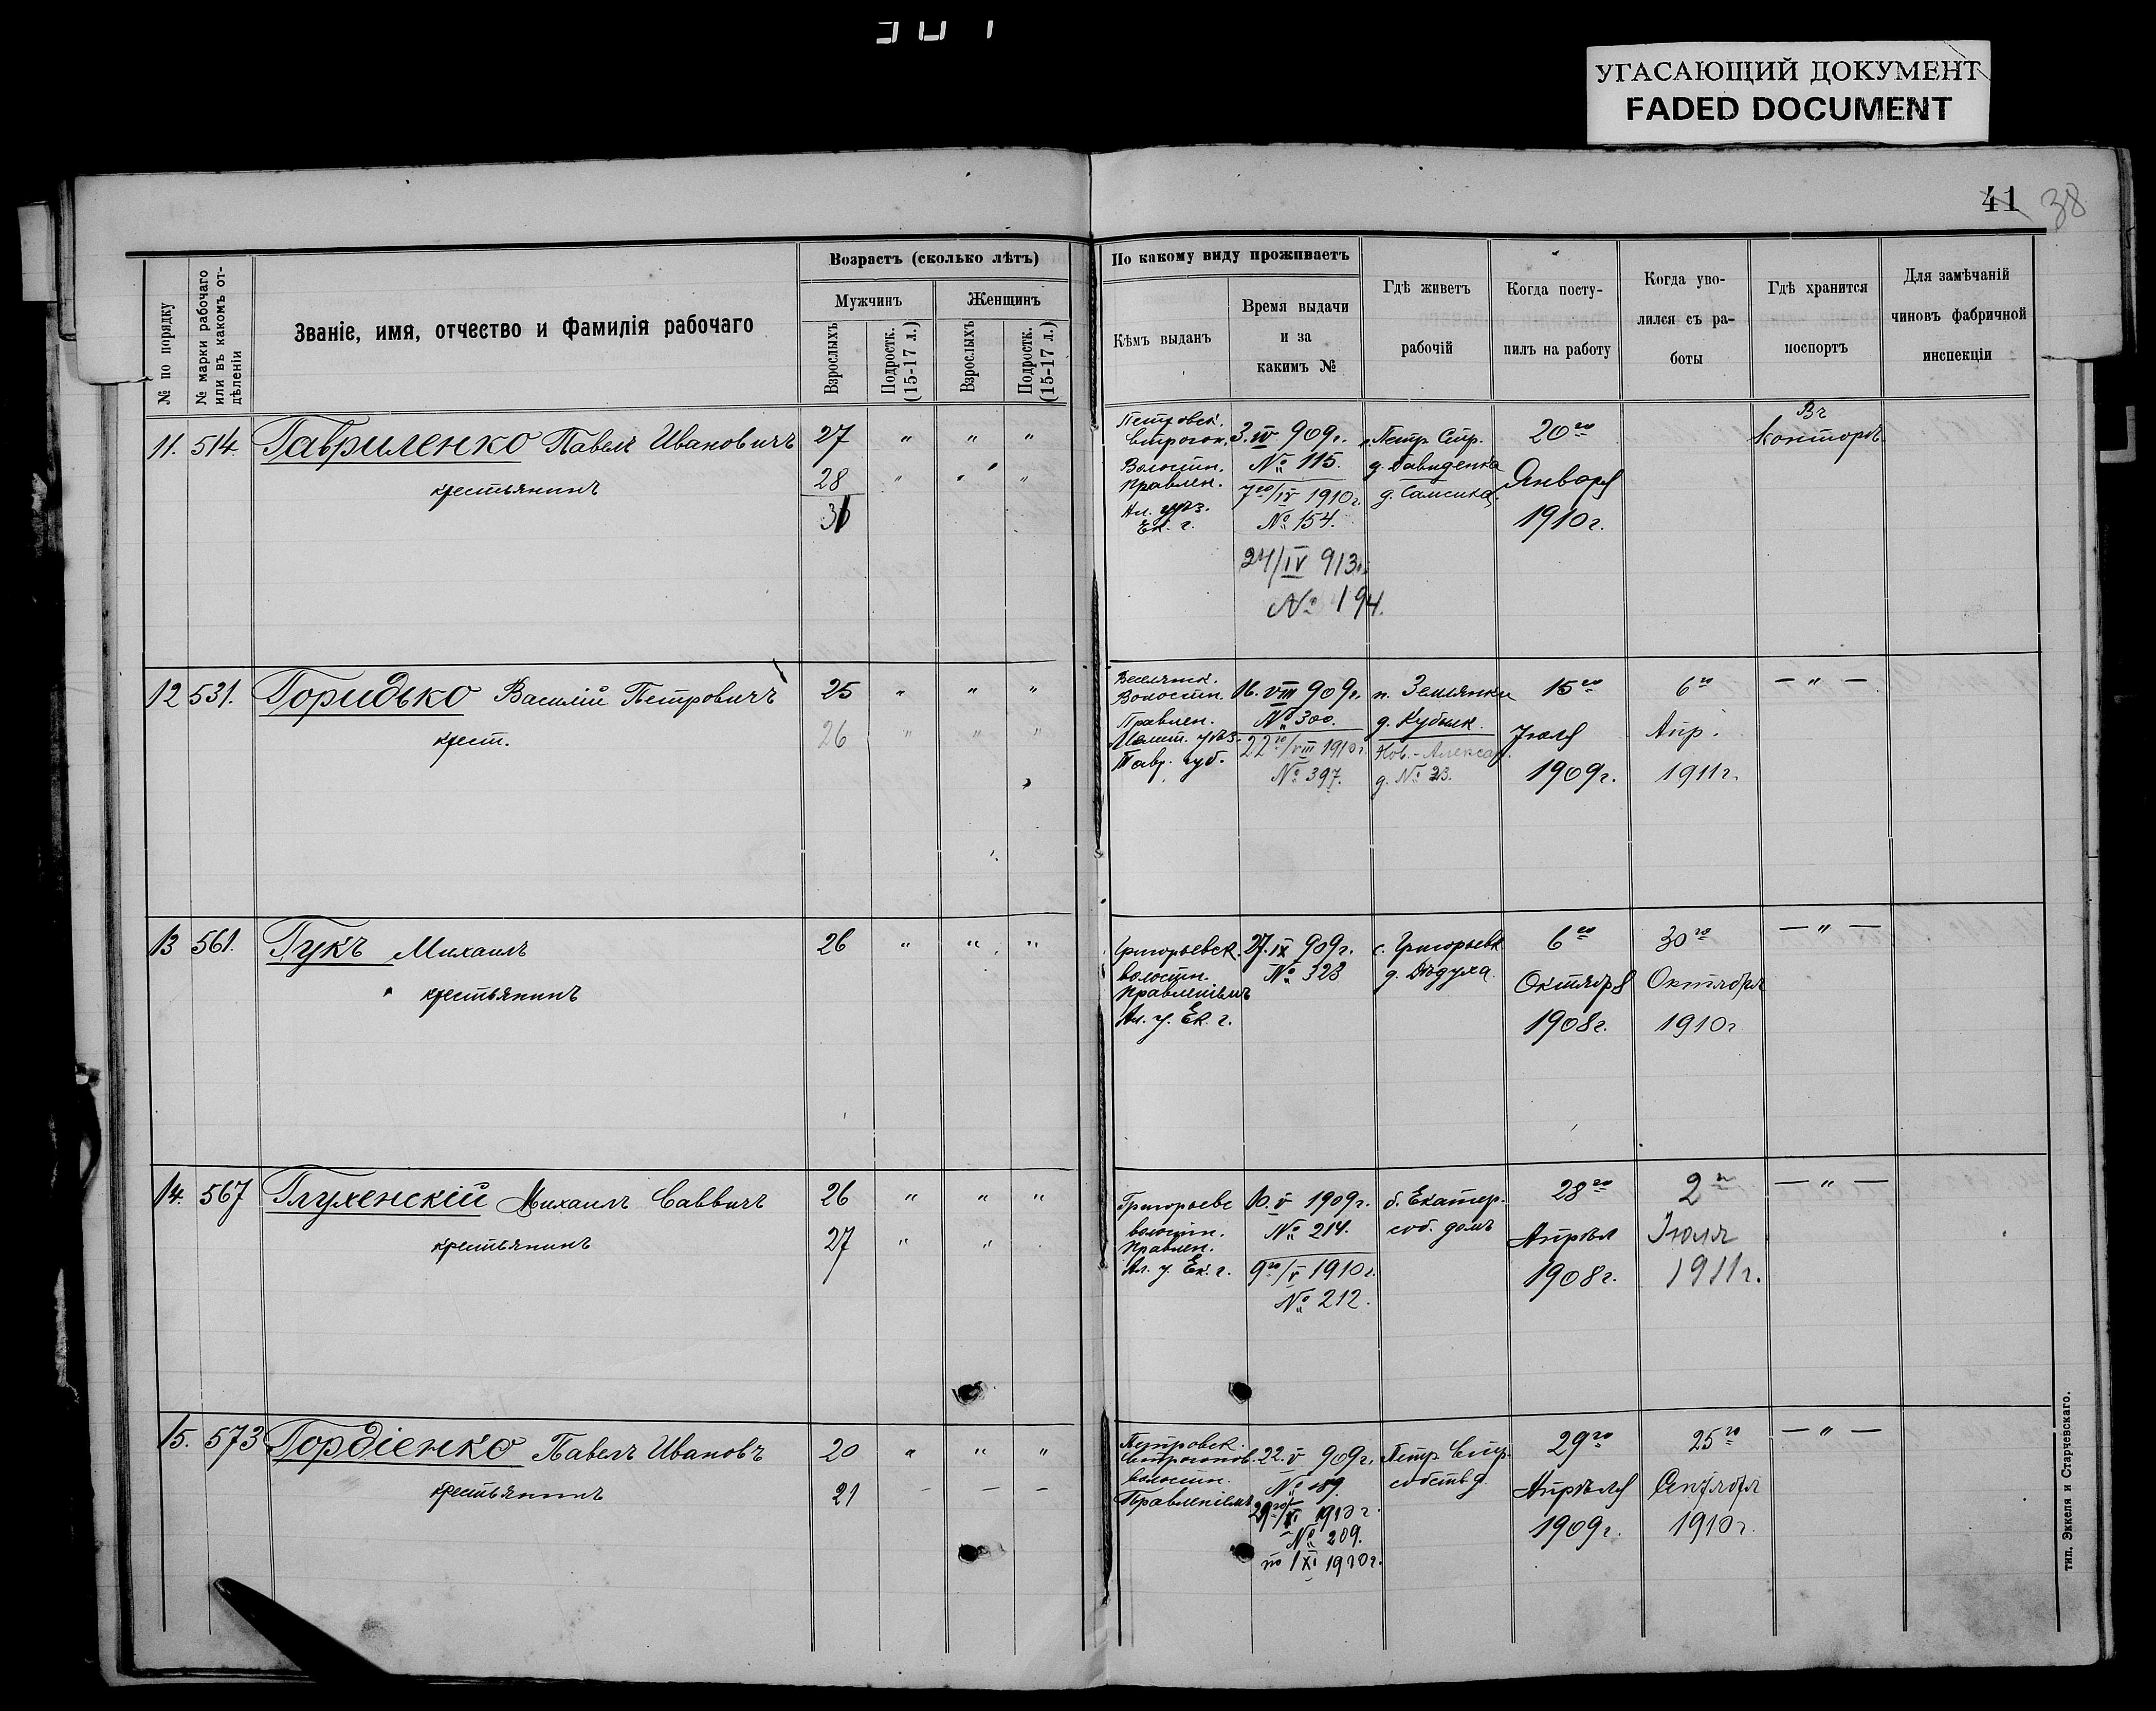 УГАСАЮЩИЙ ДОКУМЕНТ
FADED DOCUMENT
41 38
№ по порядку
№ марки рабочаго или въ какомъ от-дѣленіи
Званіе, имя, отчество и фамилія рабочаго
Возрастъ (сколько лѣтъ)
Мужчинъ
Женщинъ
Взрослыхъ
Подростк. (15-17 л.)
Взрослыхъ
Подростк. (15-17 л.)
По какому виду проживаетъ
Кѣмъ выданъ
Время выдачи
и за
какимъ №
Гдѣ живетъ
рабочій
Когда посту-
пилъ на работу
Когда уво-
лился съ ра-
боты
Гдѣ хранится
поспортъ
Для замѣчаній
чиновъ фабричной
инспекціи
11. 514. Гавриленко Павелъ Ивановичъ 27 " " "
крестьянинъ 28 " " "
31
Петровск.
Строгон.
Волостн.
Правлен.
Ал. уѣз.
Ек. г.
3.IV 909г.
№ 115.
7го/IV 1910г.
№ 154.
24/IV 913г.
№ 194.
Петр. Стр.
д. Давиденка
д. Самсика
20го
Января
1910г.
Въ
Конторѣ
12 531. Горидько Василій Петровичъ 25 " " "
крест. 26 " " "
Веселянск.
Волостн.
Правлен.
Мелит. уѣз.
Тавр. губ.
16.VIII 909г.
№ 300.
22го/VIII 1910г.
№ 397.
п. Землянки
д. Кубык.
Нов.-Алексад.
д. № 23.
15го
Іюля
1909г.
6го
Апр.
1911г.
— " —
13 561. Гукъ Михаилъ 26 " " "
крестьянинъ
Григорьевск.
волостн.
правленіемъ
Ал. у. Ек. г.
27.IX 909г.
№ 323
с. Григорьевк
д. Дѣдуха
6го
Октября
1908г.
30го
Октября
1910г
— " —
14. 567 Глухенскій Михаилъ Саввичъ 26 " " "
крестьянинъ 27 " "
Григорьевс
волостн.
правлен.
Ал. у. Ек. г.
10.V 1909г.
№ 214.
9го/V 1910г.
№ 212.
б. Екатер.
соб. домъ
28го
Апрѣл
1908г.
2го
Іюля
1911г.
— " —
15. 573 Гордіенко Павелъ Ивановъ 20 " " "
крестьянинъ 21 — — —
Петровск.
Строгонов.
волостн.
Правленіемъ
22.V 909г.
№ 189.
29го/XI 1910г.
№ 209.
по 1 XI 1910г.
Петр. Стр.
собств д.
29го
Апрѣля
1909г.
25го
Сентября
1910г.
— " —
тип. Эккеля и Старчевскаго.